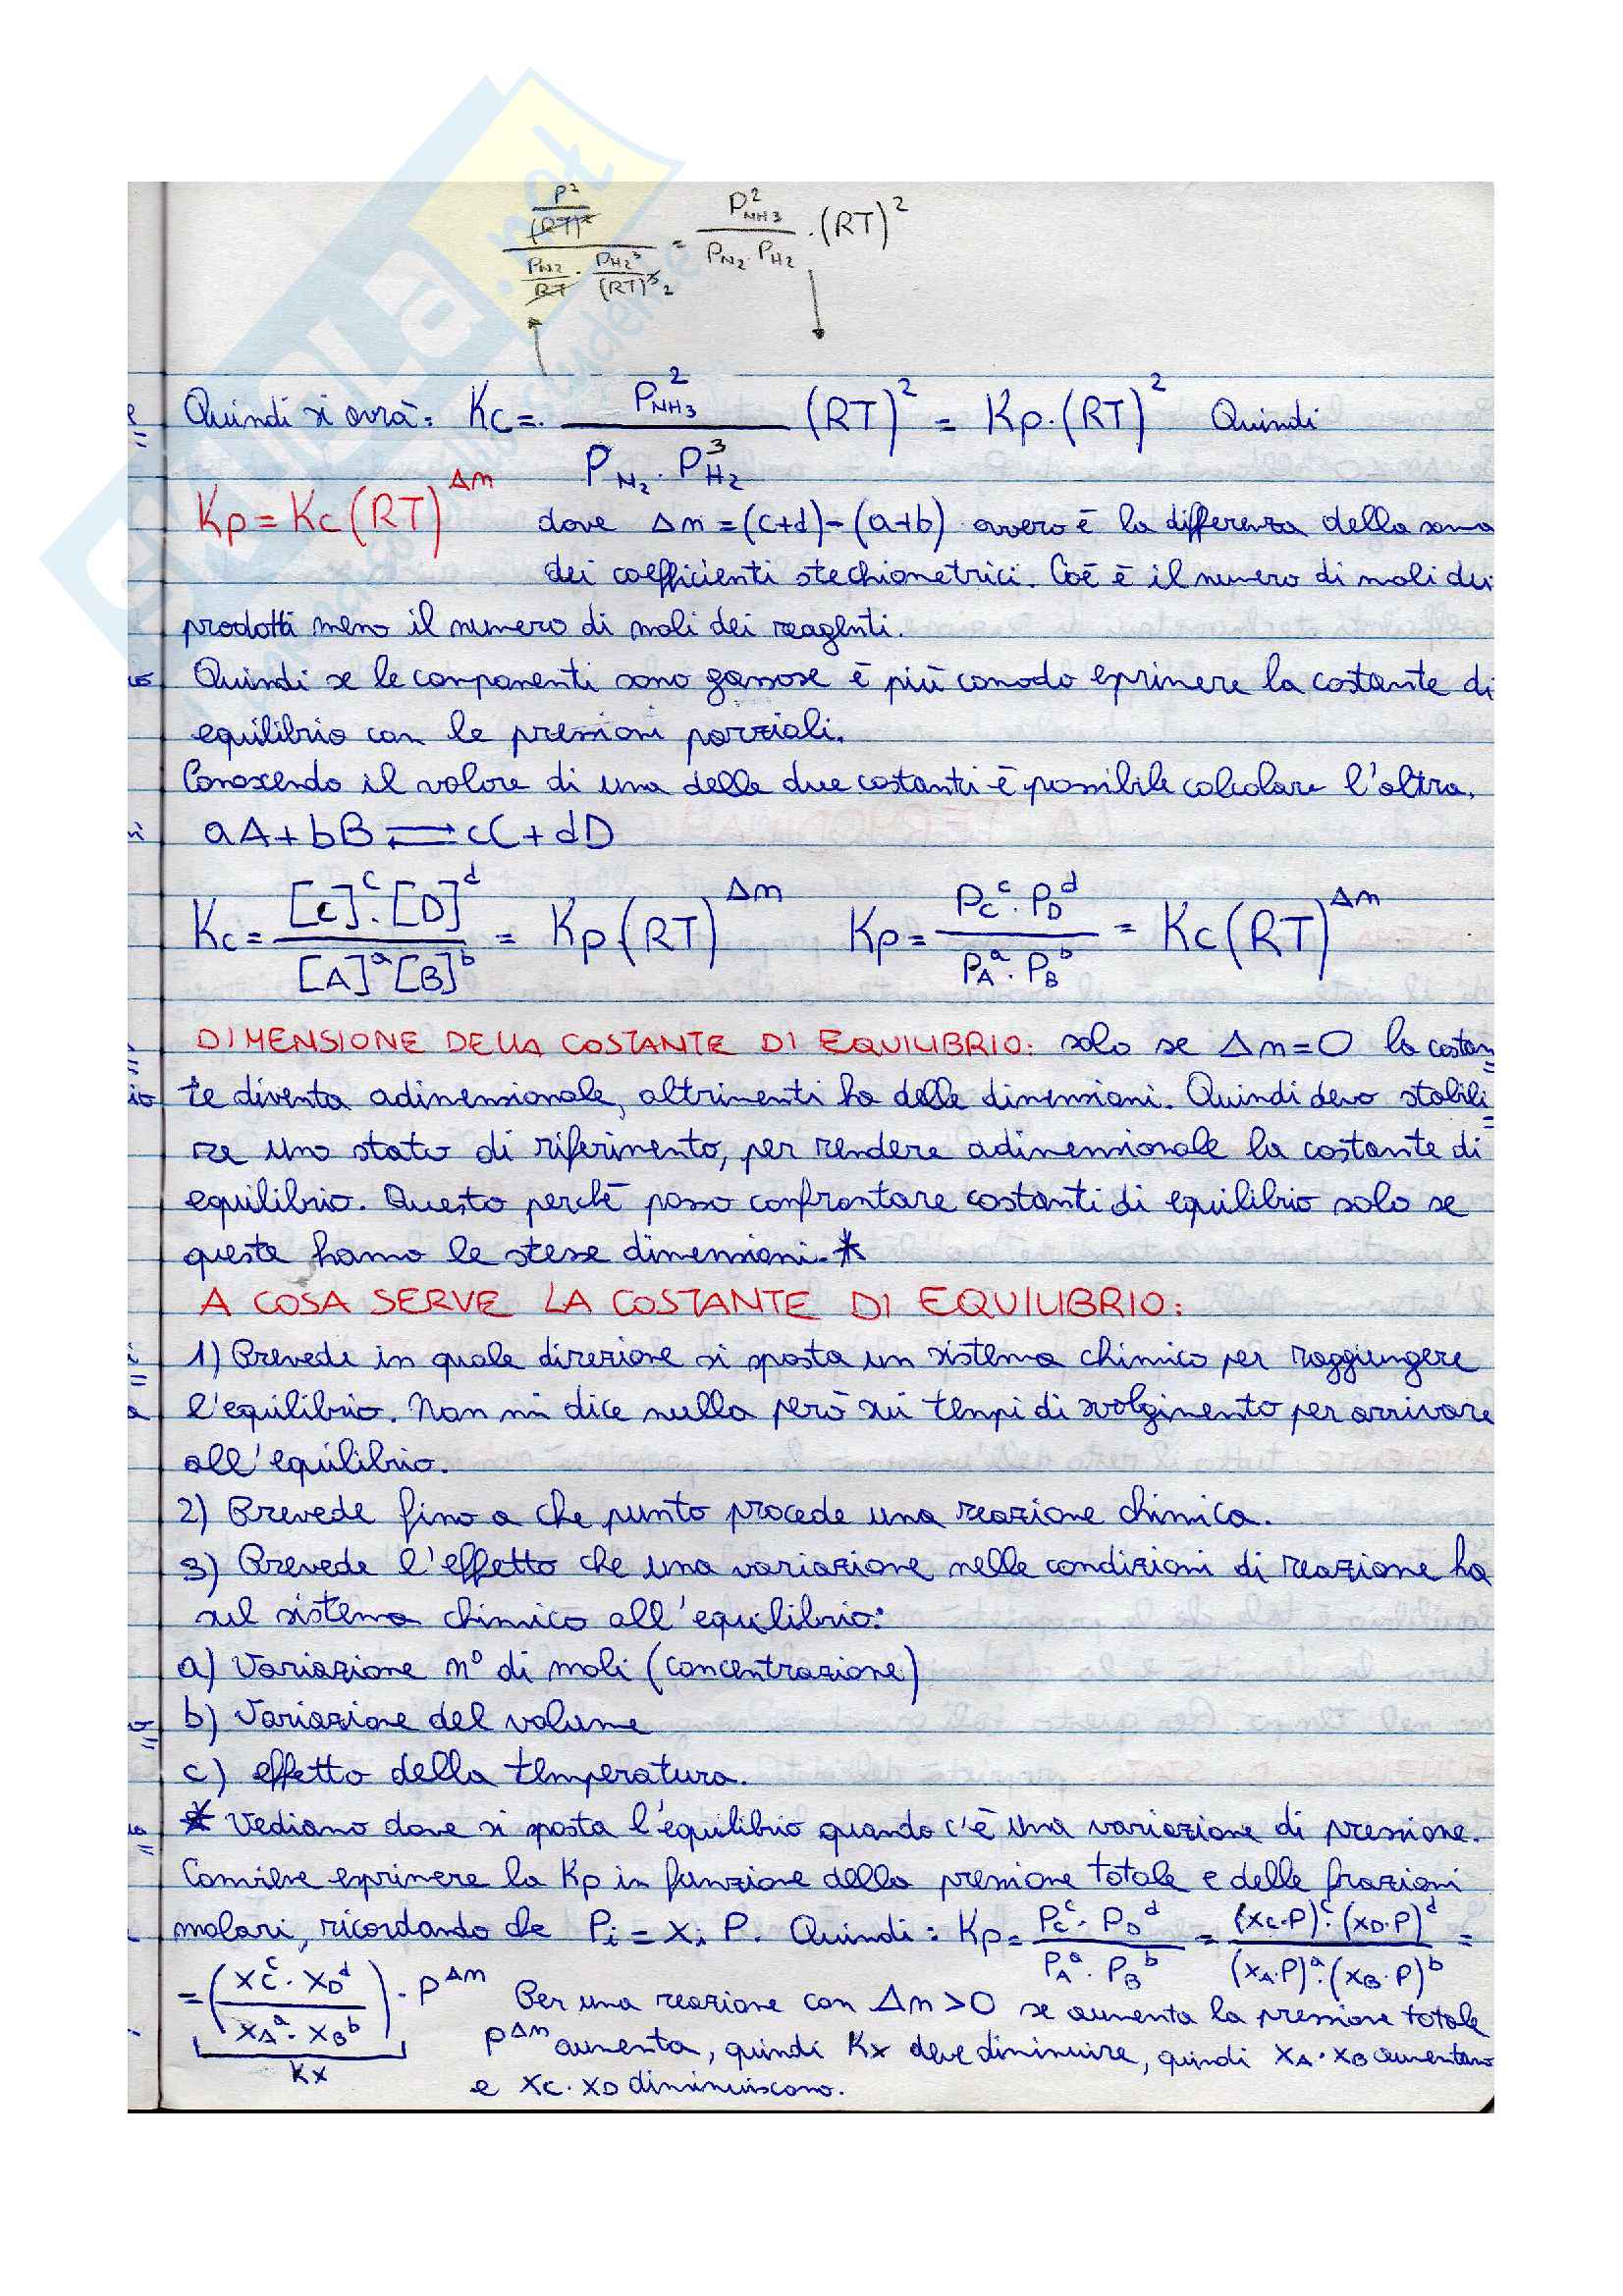 P² / (RT)² / P_N2 / RT · P_H2³ / (RT)³ 2 = P²_NH3 / P_N2 · P_H2 · (RT)²
Quindi si avrà: Kc = P²_NH3 / P_N2 · P³_H2 (RT)² = Kp · (RT)² Quindi
Kp = Kc (RT)^Δn dove Δn = (c+d) - (a+b) ovvero è la differenza della soma
dei coefficienti stechiometrici. Coé è il numero di moli dei
prodotti meno il numero di moli dei reagenti.
Quindi se le componenti sono gassose è più comodo eprimere la costante di
equilibrio con le pressioni parziali.
Conoscendo il valore di una delle due costanti è possibile calcolare l'altra.
aA + bB ⇌ cC + dD
Kc = [C]^c · [D]^d / [A]^a [B]^b = Kp (RT)^Δn Kp = P_C^c · P_D^d / P_A^a · P_B^b = Kc (RT)^Δn
DIMENSIONE DELLA COSTANTE DI EQUILIBRIO: solo se Δn = 0 la costan
te diventa adimensionale, altrimenti ha delle dimensioni. Quindi devo stabili
re uno stato di riferimento, per rendere adimensionale la costante di
equilibrio. Questo perché posso confrontare costanti di equilibrio solo se
queste hanno le stesse dimensioni. *
A COSA SERVE LA COSTANTE DI EQUILIBRIO:
1) Prevede in quale direzione si sposta un sistema chimico per raggiungere
l'equilibrio. Non mi dice nulla però sui tempi di svolgimento per arrivare
all'equilibrio.
2) Prevede fino a che punto procede una reazione chimica.
3) Prevede l'effetto che una variazione nelle condizioni di reazione ha
sul sistema chimico all'equilibrio:
a) Variazione n° di moli (concentrazione)
b) Variazione del volume
c) effetto della temperatura.
* Vediamo dove si sposta l'equilibrio quando c'è una variazione di pressione.
Conviene esprimere la Kp in funzione della pressione totale e delle frazioni
molari, ricordando che Pi = xi P. Quindi: Kp = P_C^c · P_D^d / P_A^a · P_B^b = (x_C·P)^c · (x_D·P)^d / (x_A·P)^a · (x_B·P)^b =
= (x_C^c · x_D^d / x_A^a · x_B^b) · P^Δn Per una reazione con Δn > 0 se aumenta la pressione totale
Kx P^Δn aumenta, quindi Kx deve diminuire, quindi x_A · x_B aumentano
e x_C · x_D diminuiscono.